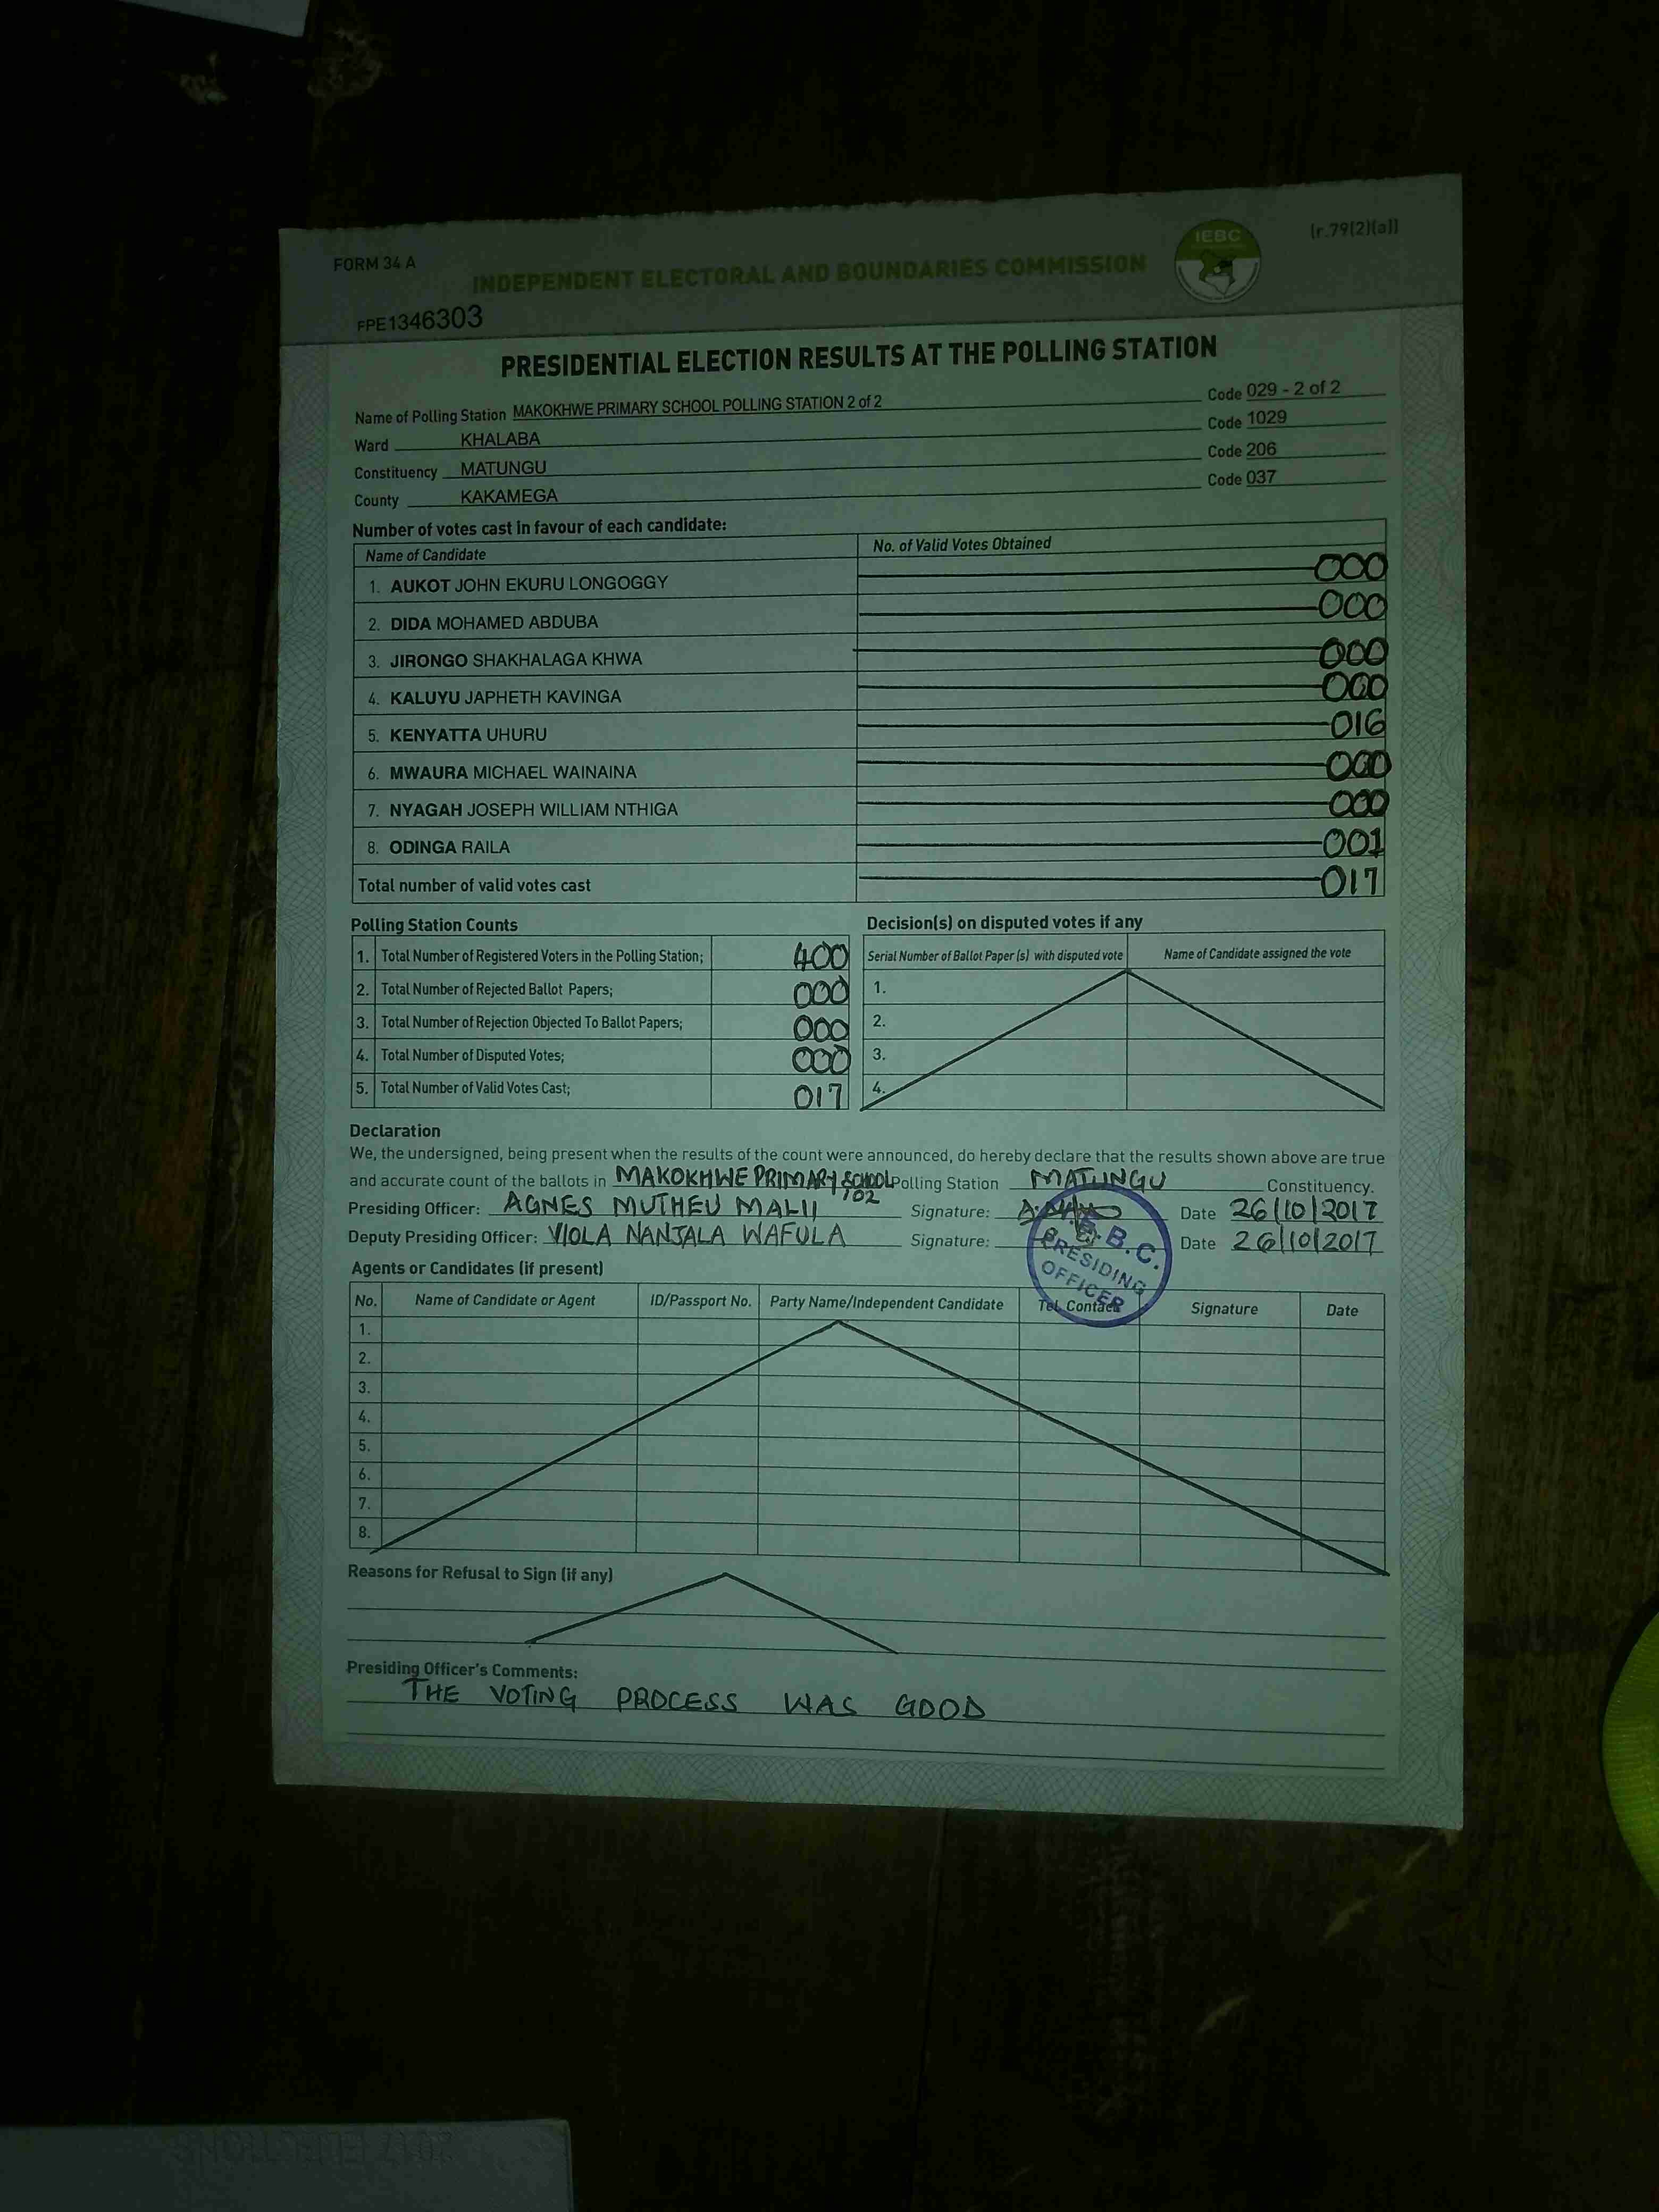 FORM 34 A
[r.79(2)(a)]
IEBC
INDEPENDENT ELECTORAL AND BOUNDARIES COMMISSION
FPE1346303
PRESIDENTIAL ELECTION RESULTS AT THE POLLING STATION
Name of Polling Station MAKOKHWE PRIMARY SCHOOL POLLING STATION 2 of 2 Code 029 - 2 of 2
Ward KHALABA Code 1029
Constituency MATUNGU Code 206
County KAKAMEGA Code 037
Number of votes cast in favour of each candidate:
Name of Candidate No. of Valid Votes Obtained
1. AUKOT JOHN EKURU LONGOGGY 000
2. DIDA MOHAMED ABDUBA 000
3. JIRONGO SHAKHALAGA KHWA 000
4. KALUYU JAPHETH KAVINGA 000
5. KENYATTA UHURU 016
6. MWAURA MICHAEL WAINAINA 000
7. NYAGAH JOSEPH WILLIAM NTHIGA 000
8. ODINGA RAILA 001
Total number of valid votes cast 017
Polling Station Counts
1. Total Number of Registered Voters in the Polling Station; 400
2. Total Number of Rejected Ballot Papers; 000
3. Total Number of Rejection Objected To Ballot Papers; 000
4. Total Number of Disputed Votes; 000
5. Total Number of Valid Votes Cast; 017
Decision(s) on disputed votes if any
Serial Number of Ballot Paper (s) with disputed vote Name of Candidate assigned the vote
1.
2.
3.
4.
Declaration
We, the undersigned, being present when the results of the count were announced, do hereby declare that the results shown above are true
and accurate count of the ballots in MAKOKHWE PRIMARY SCHOOL Polling Station MATUNGU Constituency.
102
Presiding Officer: AGNES MUTHEU MALII Signature: Date 26/10/2017
Deputy Presiding Officer: VIOLA NANJALA WAFULA Signature: Date 26/10/2017
B.C.
PRESIDING
OFFICER
Agents or Candidates (if present)
No. Name of Candidate or Agent ID/Passport No. Party Name/Independent Candidate Tel. Contact Signature Date
1.
2.
3.
4.
5.
6.
7.
8.
Reasons for Refusal to Sign (if any)
Presiding Officer's Comments:
THE VOTING PROCESS WAS GOOD